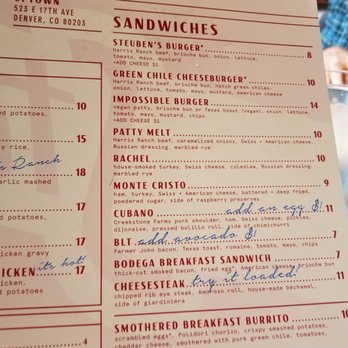 523 E 17TH AVE
DENVER, CO 80203
10
15
18
17
17
15
SANDWICHES
STEUBEN'S BURGER* 8
Harris Ranch beef, brioche bun, onion, lettuce,
tomato, mayo, mustard
+ADD CHEESE $1
GREEN CHILE CHEESEBURGER* 10
Harris Ranch beef, brioche bun, Hatch green chiles,
onion, lettuce, tomato, mayo, mustard, American cheese
IMPOSSIBLE BURGER 14
vegan patty, brioche bun or Texas toast (vegan), onion, lettuce,
tomato, mayo, mustard, chips
+ADD CHEESE $1
PATTY MELT 10
Harris Ranch beef, caramelized onions, Swiss + American cheese,
Russian dressing, marbled rye
RACHEL 10
house-smoked turkey, Swiss cheese, slaw, Russian dressing,
marbled rye
MONTE CRISTO 9
ham, turkey, Swiss + American cheese, battered + deep fried,
powdered sugar, side of raspberry preserves
CUBANO add an egg 11
Creekstone Farms pork shoulder, ham, Swiss cheese, pickles,
dijonaise, pressed bolillo roll, side of chimichurri
BLT add avocado 7
Farmer John bacon, Texas toast, romaine, tomato, mayo, chips
BODEGA BREAKFAST SANDWICH 7
thick-cut smoked bacon, fried egg*, American cheese, brioche bun
CHEESESTEAK try it loaded! 11
chipped rib eye steak, Amoroso roll, house-made béchamel,
side of giardiniera
SMOTHERED BREAKFAST BURRITO
scrambled eggs*, Polidori chorizo, crispy smashed potatoes,
cheddar cheese, smothered with pork green chile, tomatoes,
potatoes,
ry rice,
Ranch
arlic mashed
d potatoes,
icken gravy
ICKEN it's hot!
d potatoes,